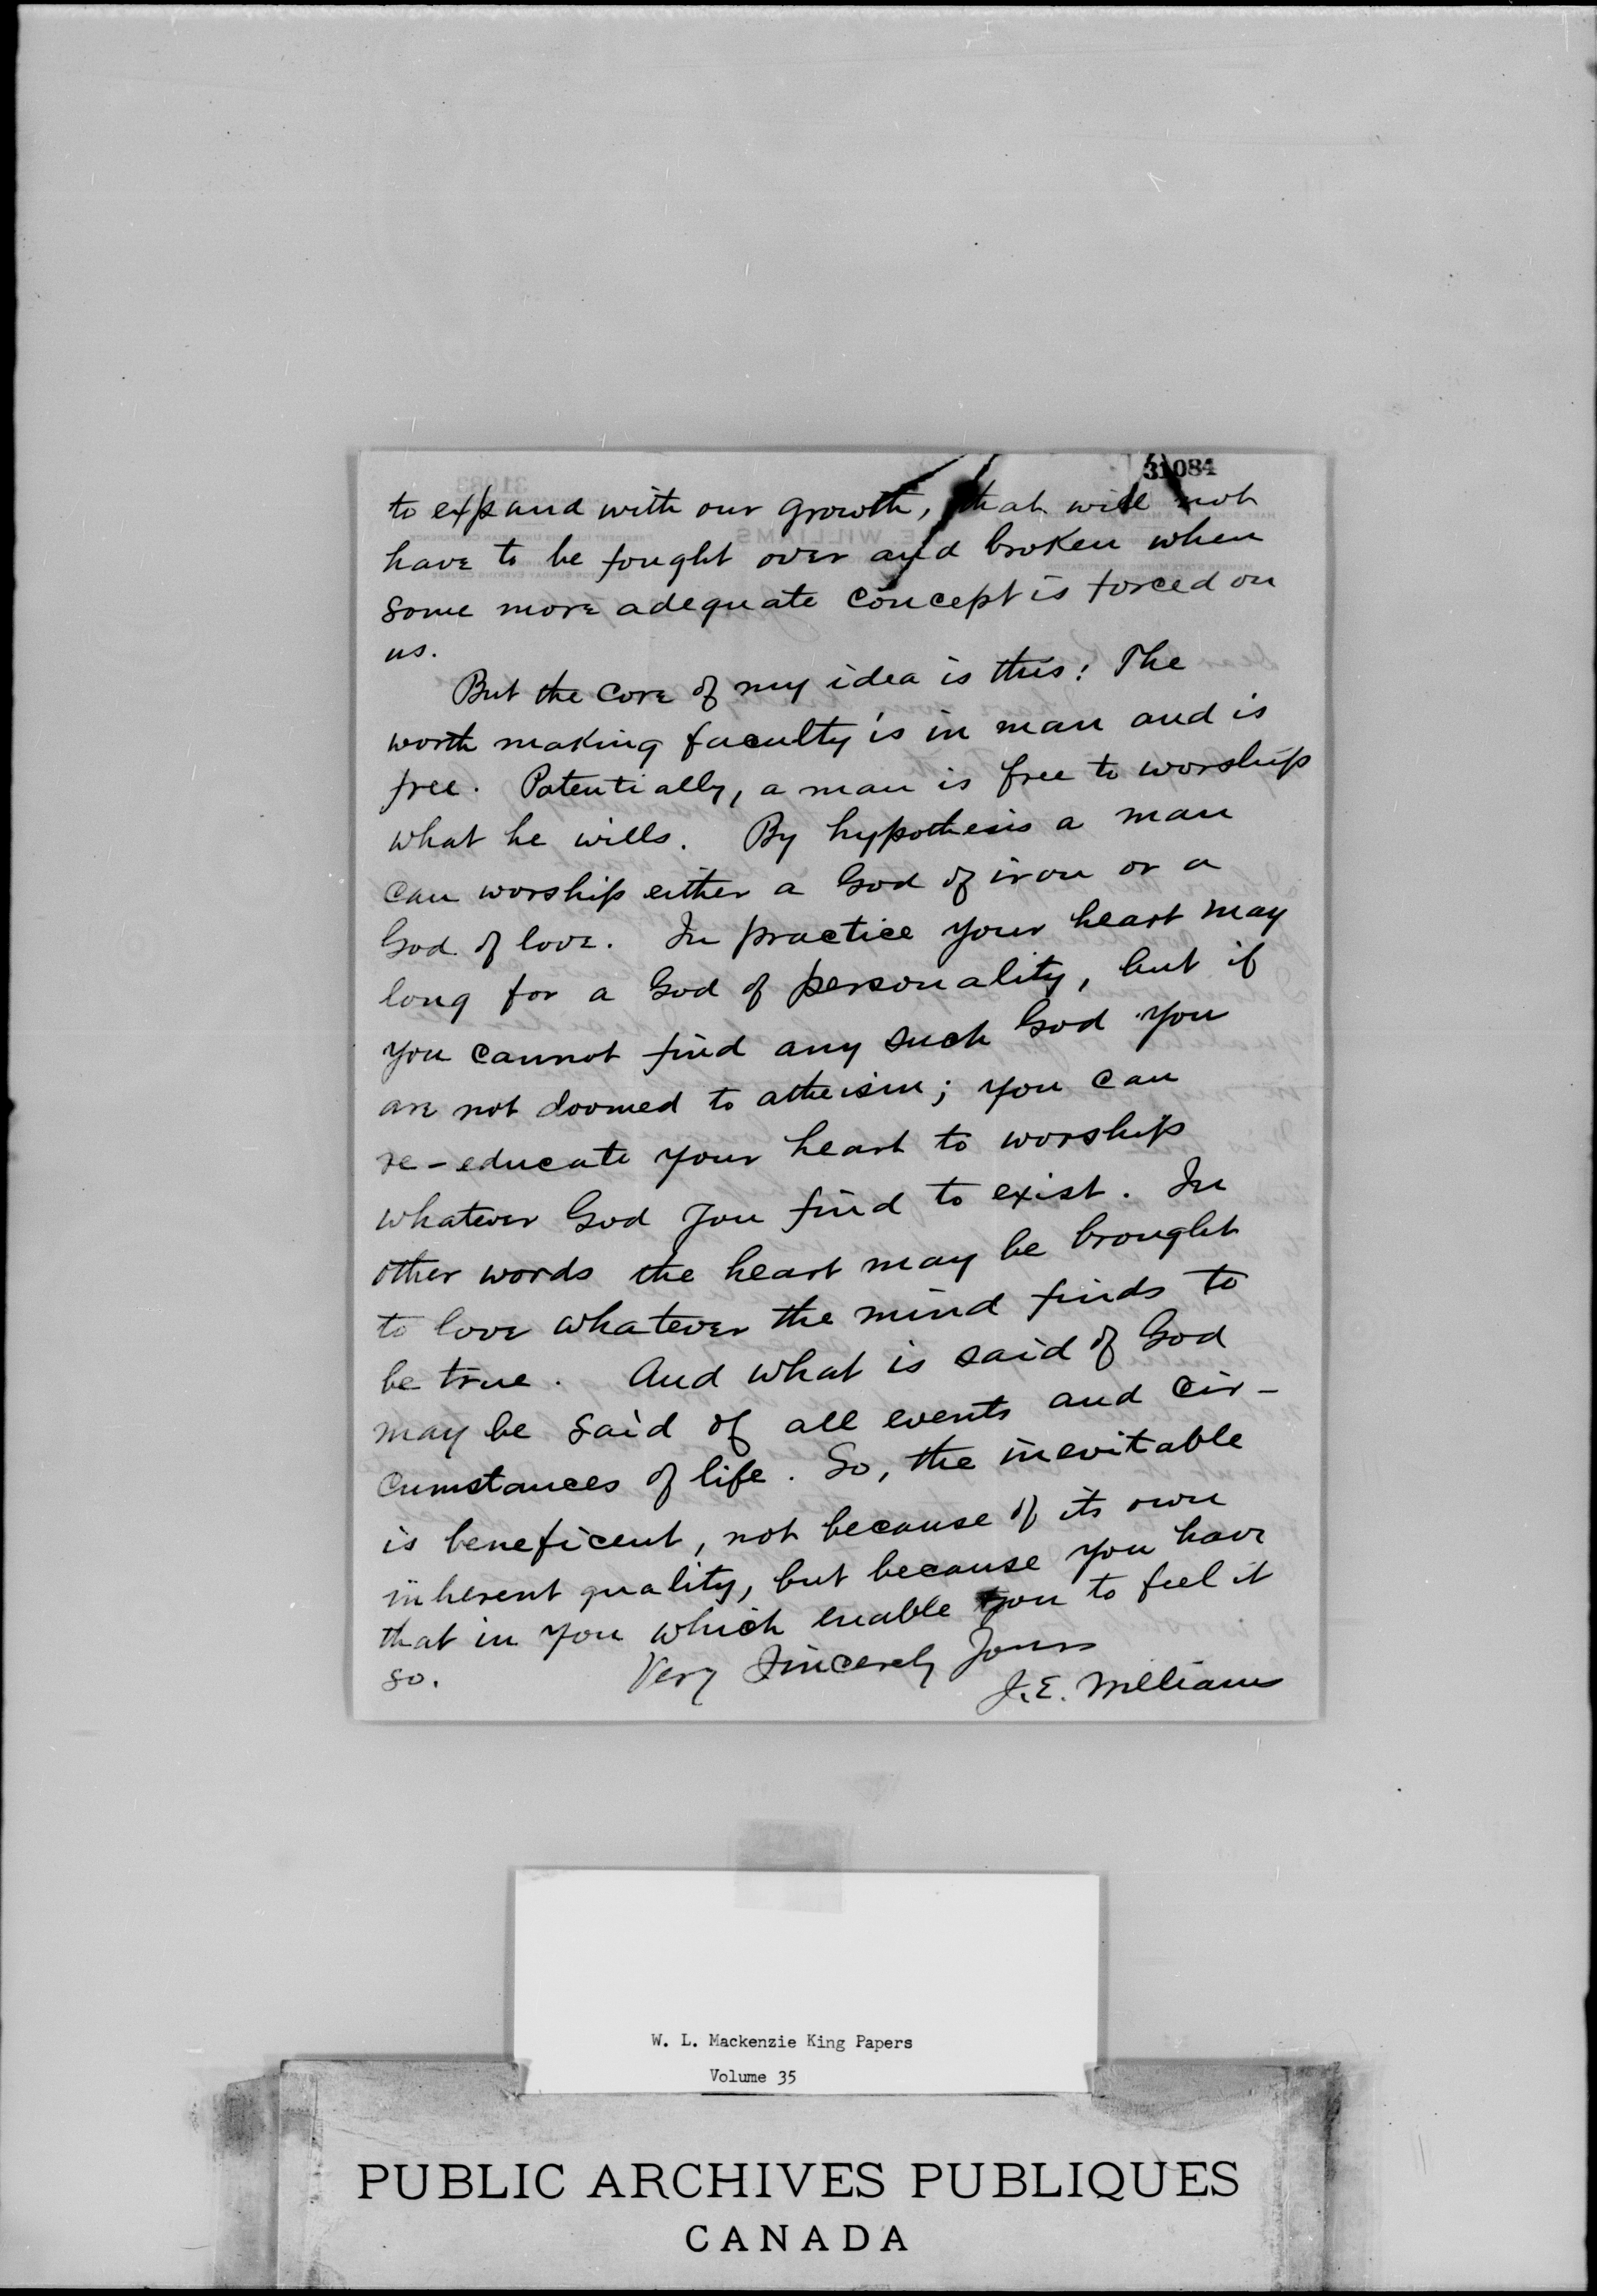 31084
to expand with our growth, that will not
have to be fought over and broken when
some more adequate concept is forced on
us.
But the core of my idea is this: The
worth making faculty is in man and is
free. Potentially, a man is free to worship
what he wills. By hypothesis a man
can worship either a God of iron or a
God of love. In practice your heart may
long for a God of personality, but if
you cannot find any such God you
are not doomed to atheism; you can
re-educate your heart to worship
whatever God you find to exist. In
other words the heart may be brought
to love whatever the mind finds to
be true. And what is said of God
may be said of all events and cir-
cumstances of life. So, the inevitable
is beneficent, not because of its own
inherent quality, but because you have
that in you which enable you to feel it
so. Very Sincerely Yours
J. E. Williams
W. L. Mackenzie King Papers
Volume 35
PUBLIC ARCHIVES PUBLIQUES
CANADA